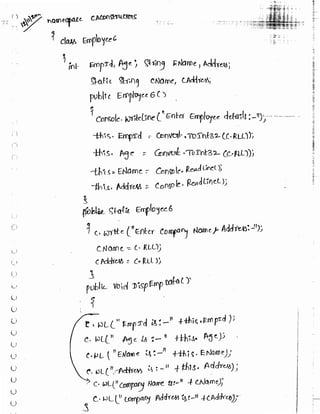 namespace CAConstructors
{
class Employee6
{
int EmpId, Age; string EName, Address;
Static string CName, CAddress;
public Employee6 ( )
{
Console.WriteLine ("Enter Employee details:-");
this.EmpId = Convert.ToInt32 (C.RLL());
this.Age = Convert.ToInt32 (C.RLL());
this.EName = Console.ReadLine();
this.Address = Console.ReadLine();
}
Static Employee6
{ C.Write ("Enter Company Name & Address:-");
CName = C.RLL();
CAddress = C.RLL();
}
public void DispEmpData()
{
C.WL(" Emp Id is:-" + this.EmpId );
C.WL(" Age is :-" + this.Age);
C.WL (" EName is :-" + this.EName);
C.WL(" Address is :-" + this.Address);
C.WL("Company Name is:-" + CName);
C.WL("Company Address is:-" + CAddress);
}